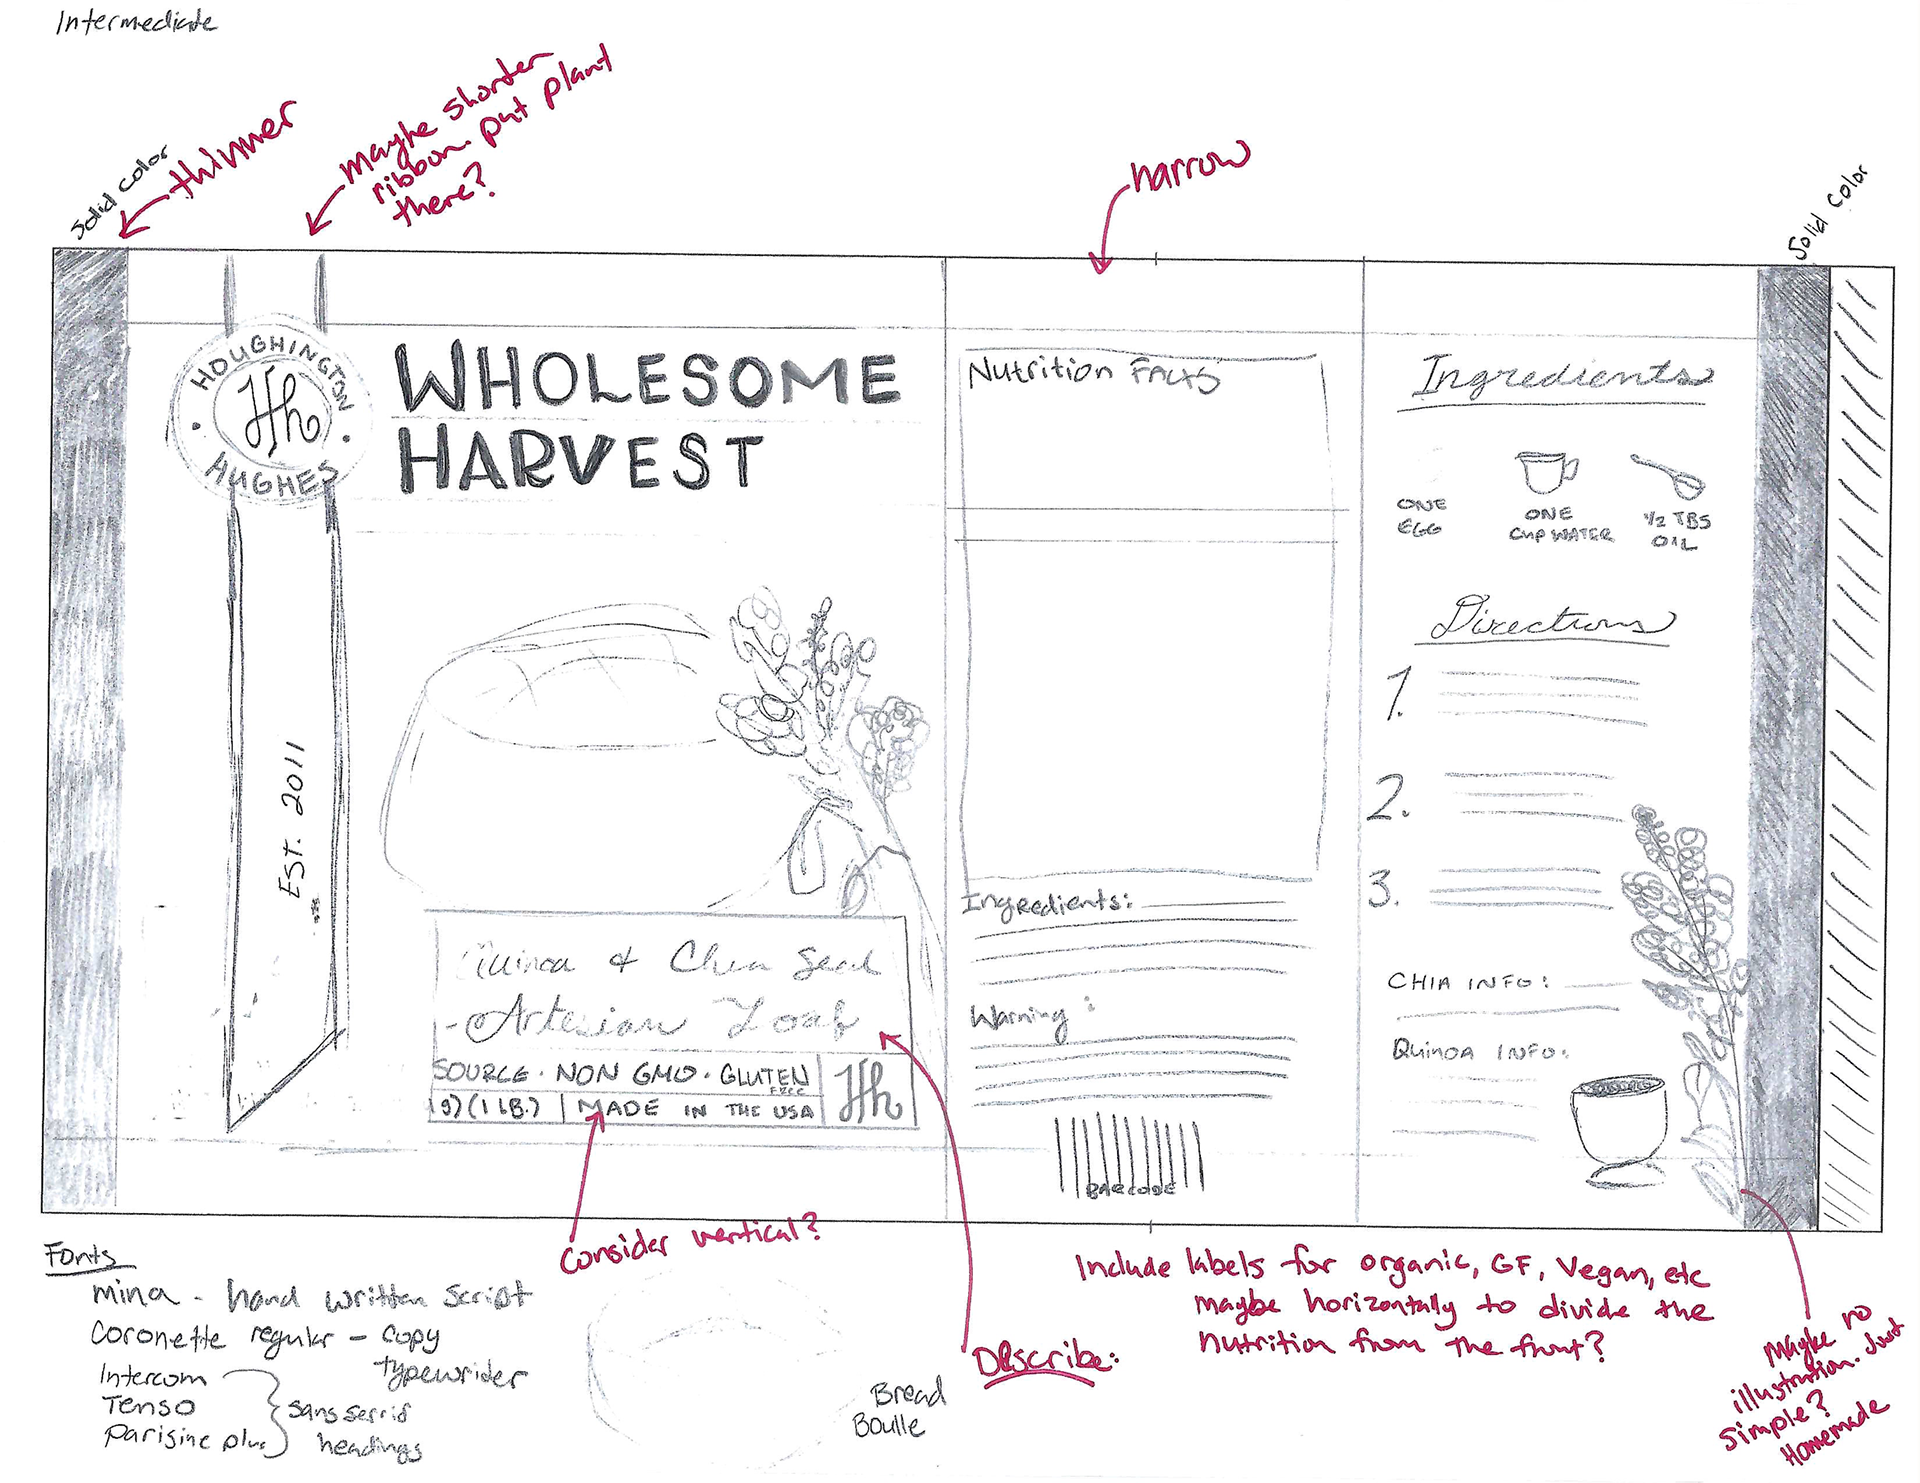 Intermediate
Solid color
thinner
maybe shorter
ribbon. put plant
there?
narrow
Solid color
HOUGHINGTON
Hh
HUGHES
WHOLESOME
HARVEST
EST. 2011
Quinoa & Chia Seed
Artesian Loaf
SOURCE · NON GMO · GLUTEN
FREE
(1 LB.) | MADE IN THE USA
Hh
Nutrition FACTS
Ingredients:
Warning:
BARCODE
Ingredients
ONE
EGG
ONE
CUP WATER
1/2 TBS
OIL
Directions
1.
2.
3.
CHIA INFO:
QUINOA INFO:
consider vertical?
Describe:
Include labels for organic, GF, Vegan, etc
maybe horizontally to divide the
nutrition from the front?
Maybe no
illustration. Just
simple?
Homemade
Fonts
mina - hand written script
coronette regular - copy
typewrider
Intercom
Tenso
Parisine plus
sans serrif
headings
Bread
Boulle